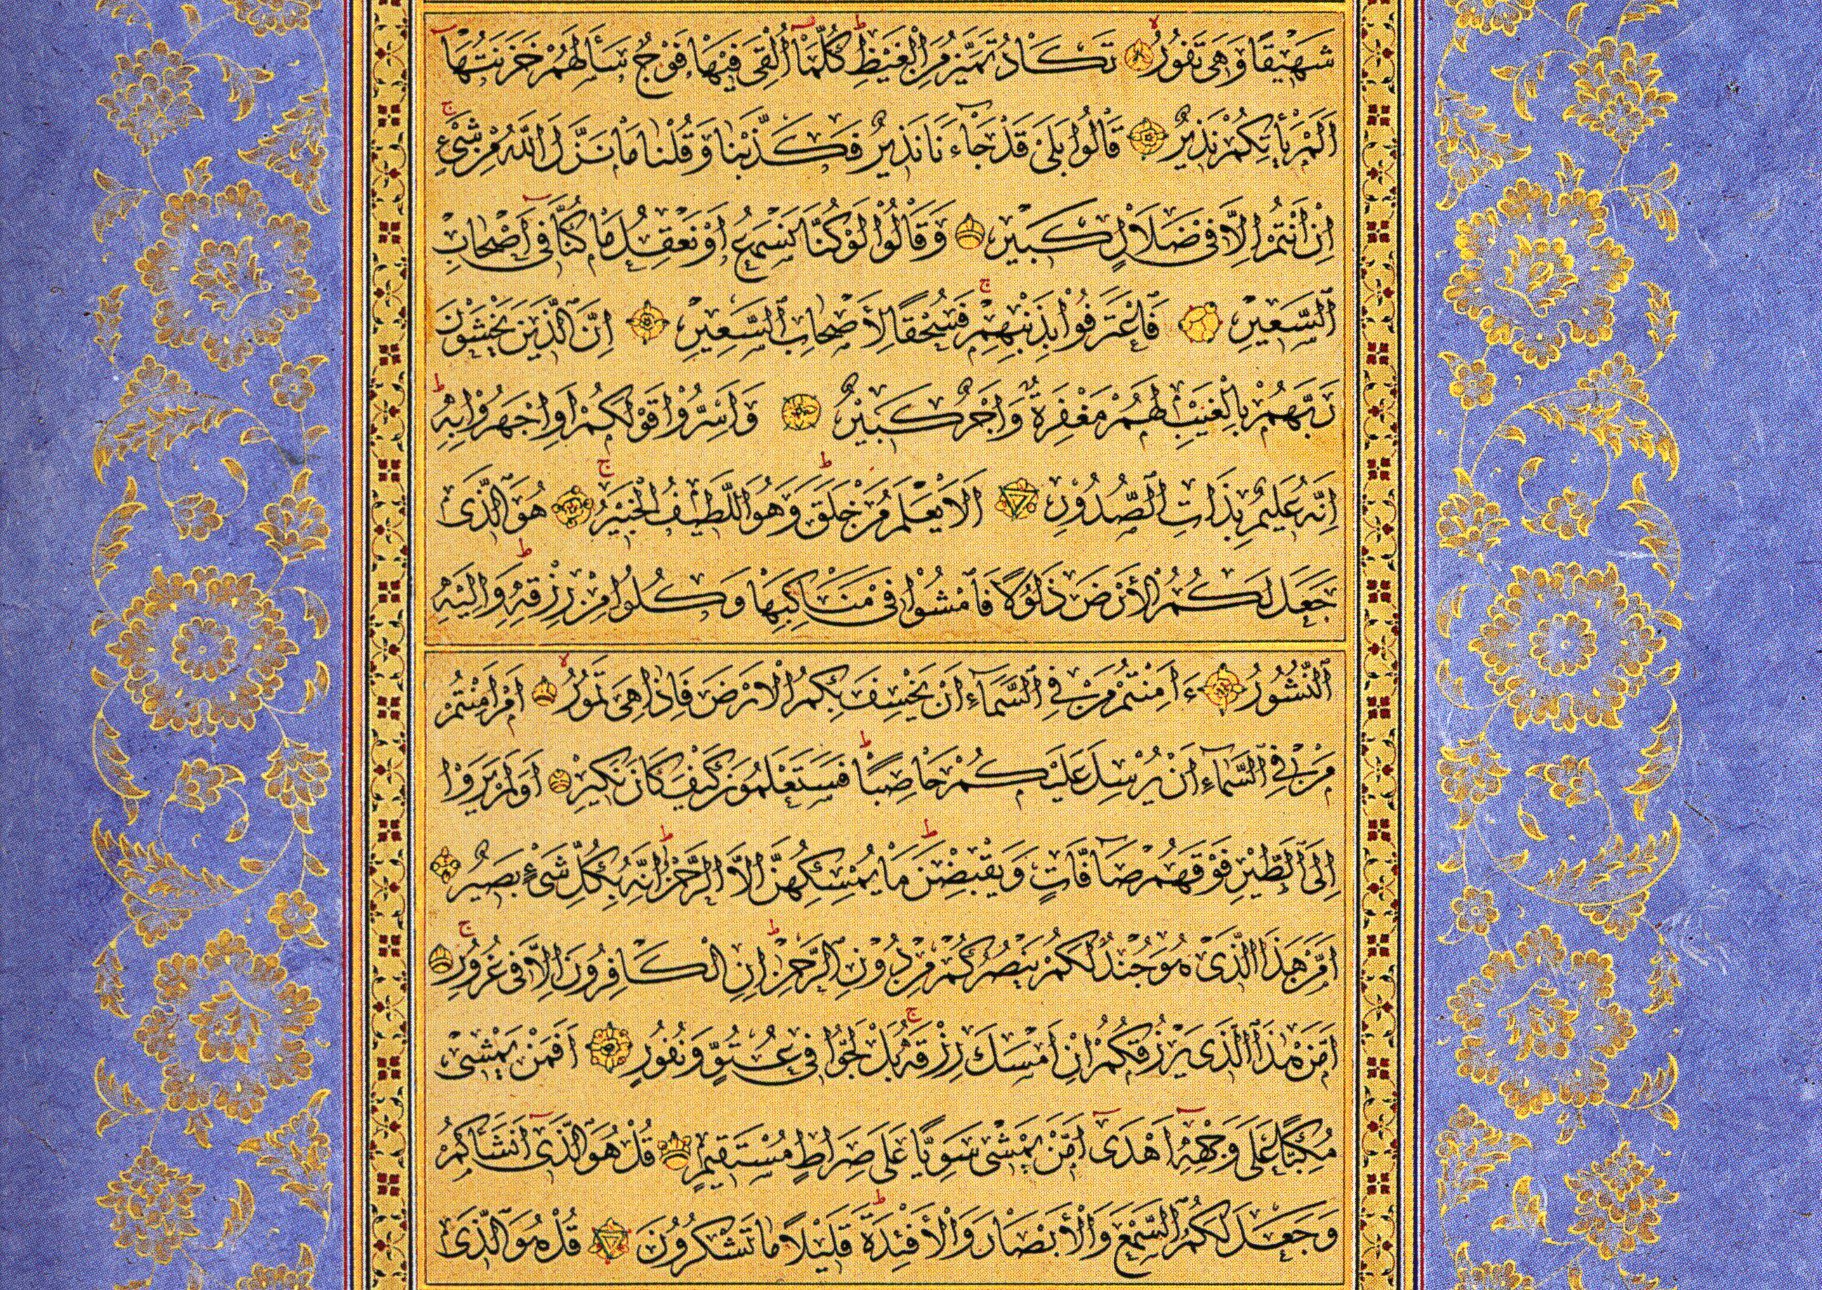 شَهِيقًا وَهِيَ تَفُورُ تَكَادُ تَمَيَّزُ مِنَ الْغَيْظِ كُلَّمَا أُلْقِيَ فِيهَا فَوْجٌ سَأَلَهُمْ خَزَنَتُهَا
أَلَمْ يَأْتِكُمْ نَذِيرٌ قَالُوا بَلَىٰ قَدْ جَاءَنَا نَذِيرٌ فَكَذَّبْنَا وَقُلْنَا مَا نَزَّلَ اللّٰهُ مِنْ شَيْءٍ
إِنْ أَنْتُمْ إِلَّا فِي ضَلَالٍ كَبِيرٍ وَقَالُوا لَوْ كُنَّا نَسْمَعُ أَوْ نَعْقِلُ مَا كُنَّا فِي أَصْحَابِ
السَّعِيرِ فَاعْتَرَفُوا بِذَنْبِهِمْ فَسُحْقًا لِأَصْحَابِ السَّعِيرِ إِنَّ الَّذِينَ يَخْشَوْنَ
رَبَّهُمْ بِالْغَيْبِ لَهُمْ مَغْفِرَةٌ وَأَجْرٌ كَبِيرٌ وَأَسِرُّوا قَوْلَكُمْ أَوِ اجْهَرُوا بِهِ
إِنَّهُ عَلِيمٌ بِذَاتِ الصُّدُورِ أَلَا يَعْلَمُ مَنْ خَلَقَ وَهُوَ اللَّطِيفُ الْخَبِيرُ هُوَ الَّذِي
جَعَلَ لَكُمُ الْأَرْضَ ذَلُولًا فَامْشُوا فِي مَنَاكِبِهَا وَكُلُوا مِنْ رِزْقِهِ وَإِلَيْهِ
النُّشُورُ ءَأَمِنْتُمْ مَنْ فِي السَّمَاءِ أَنْ يَخْسِفَ بِكُمُ الْأَرْضَ فَإِذَا هِيَ تَمُورُ أَمْ أَمِنْتُمْ
مَنْ فِي السَّمَاءِ أَنْ يُرْسِلَ عَلَيْكُمْ حَاصِبًا فَسَتَعْلَمُونَ كَيْفَ كَانَ نَكِيرِ أَوَلَمْ يَرَوْا
إِلَى الطَّيْرِ فَوْقَهُمْ صَافَّاتٍ وَيَقْبِضْنَ مَا يُمْسِكُهُنَّ إِلَّا الرَّحْمٰنُ إِنَّهُ بِكُلِّ شَيْءٍ بَصِيرٌ
أَمَّنْ هٰذَا الَّذِي هُوَ جُنْدٌ لَكُمْ يَنْصُرُكُمْ مِنْ دُونِ الرَّحْمٰنِ إِنِ الْكَافِرُونَ إِلَّا فِي غُرُورٍ
أَمَّنْ هٰذَا الَّذِي يَرْزُقُكُمْ إِنْ أَمْسَكَ رِزْقَهُ بَلْ لَجُّوا فِي عُتُوٍّ وَنُفُورٍ أَفَمَنْ يَمْشِي
مُكِبًّا عَلَىٰ وَجْهِهِ أَهْدَىٰ أَمَّنْ يَمْشِي سَوِيًّا عَلَىٰ صِرَاطٍ مُسْتَقِيمٍ قُلْ هُوَ الَّذِي أَنْشَأَكُمْ
وَجَعَلَ لَكُمُ السَّمْعَ وَالْأَبْصَارَ وَالْأَفْئِدَةَ قَلِيلًا مَا تَشْكُرُونَ قُلْ هُوَ الَّذِي